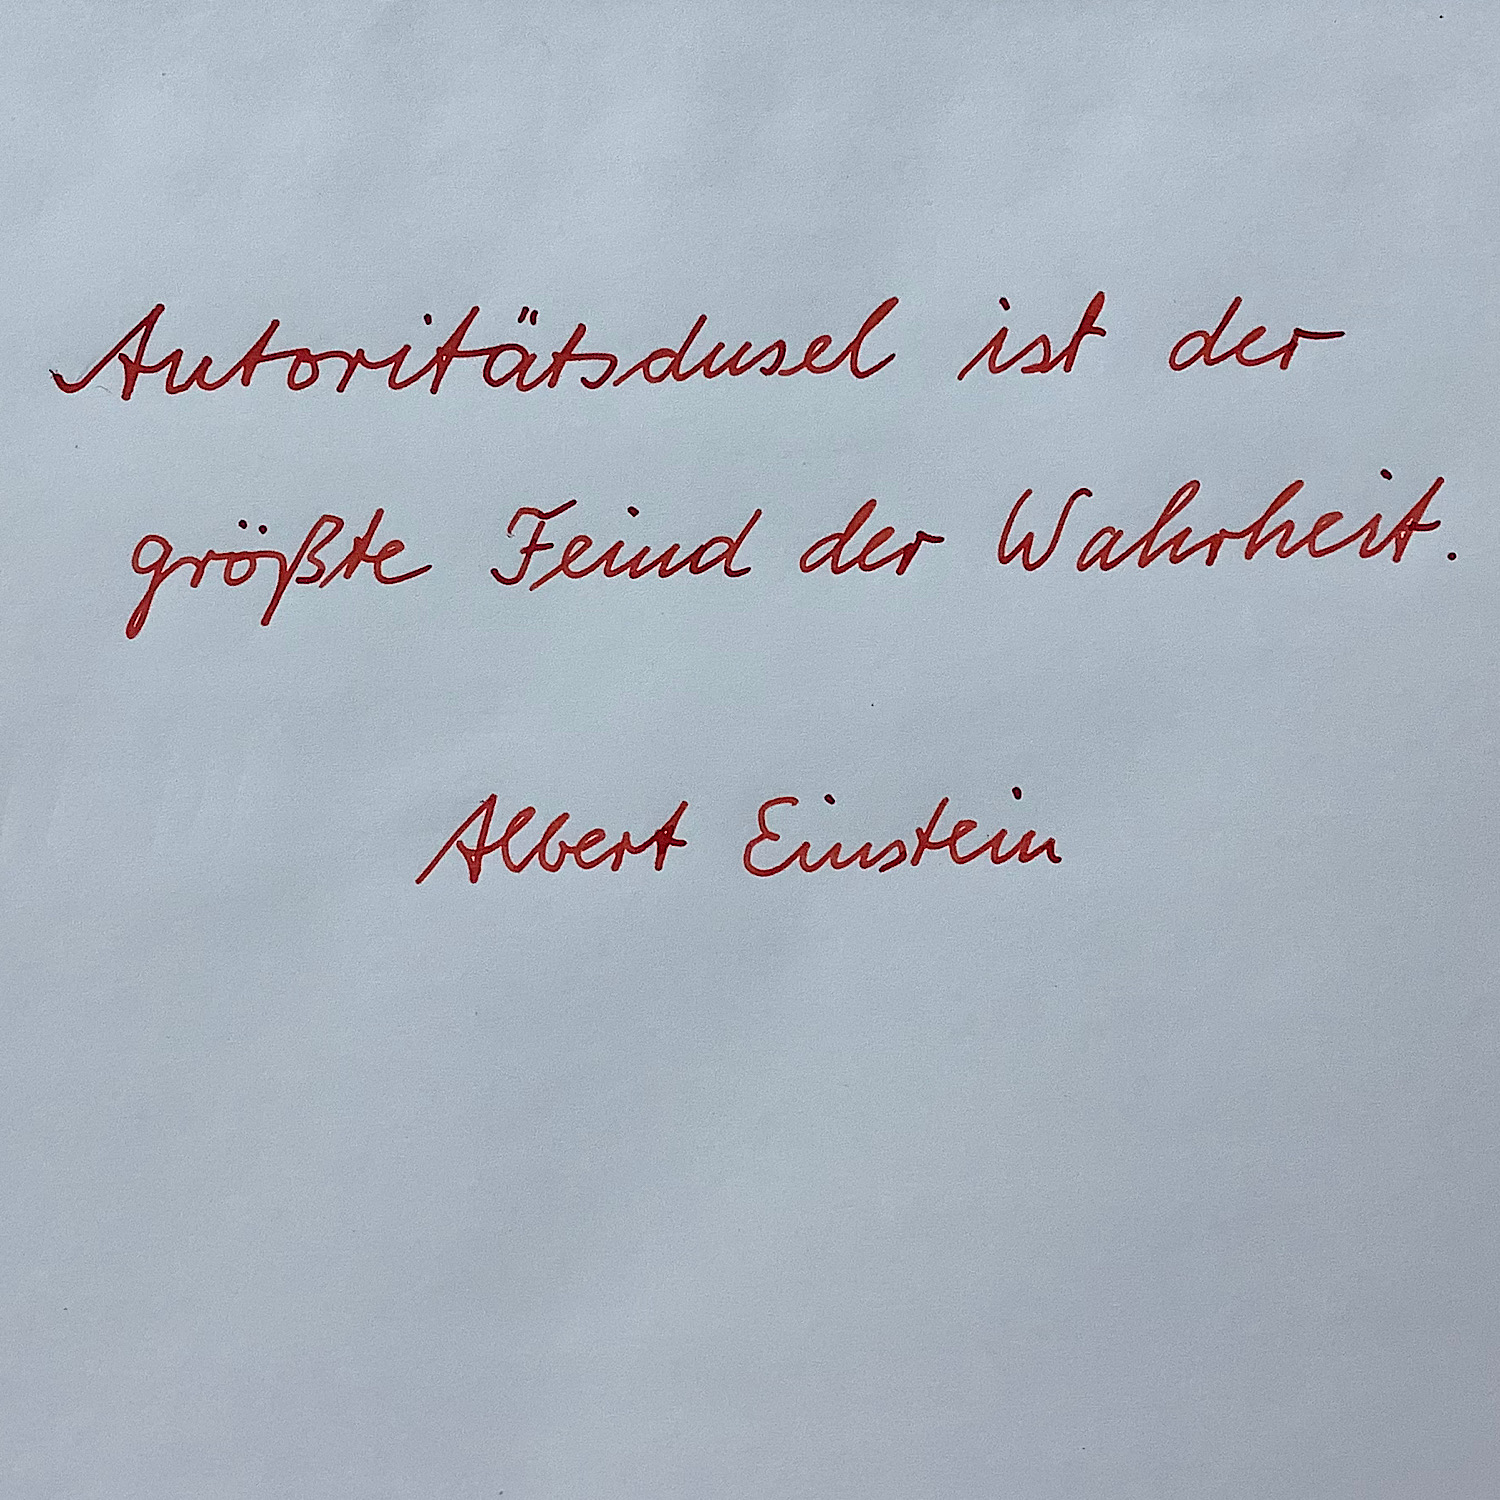 Autoritätsdusel ist der
größte Feind der Wahrheit.
Albert Einstein